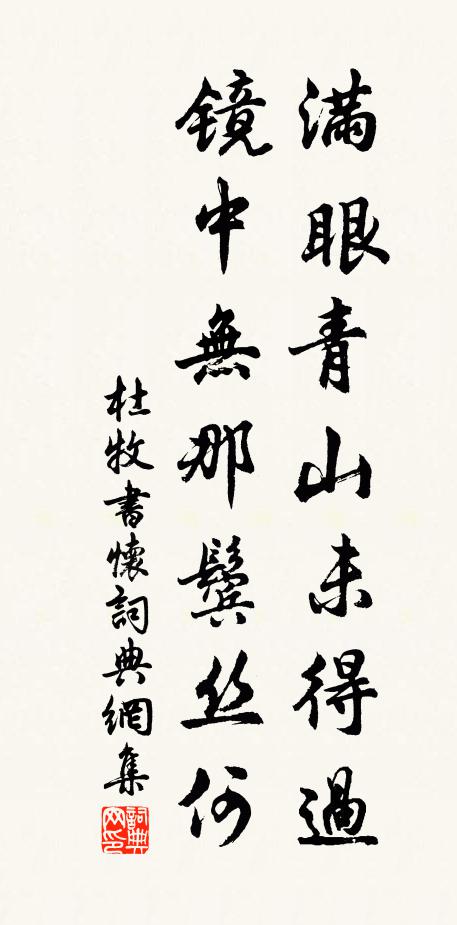 滿眼青山未得過
鏡中無那鬓丝何
杜牧書懷詞典網集
詞典网印